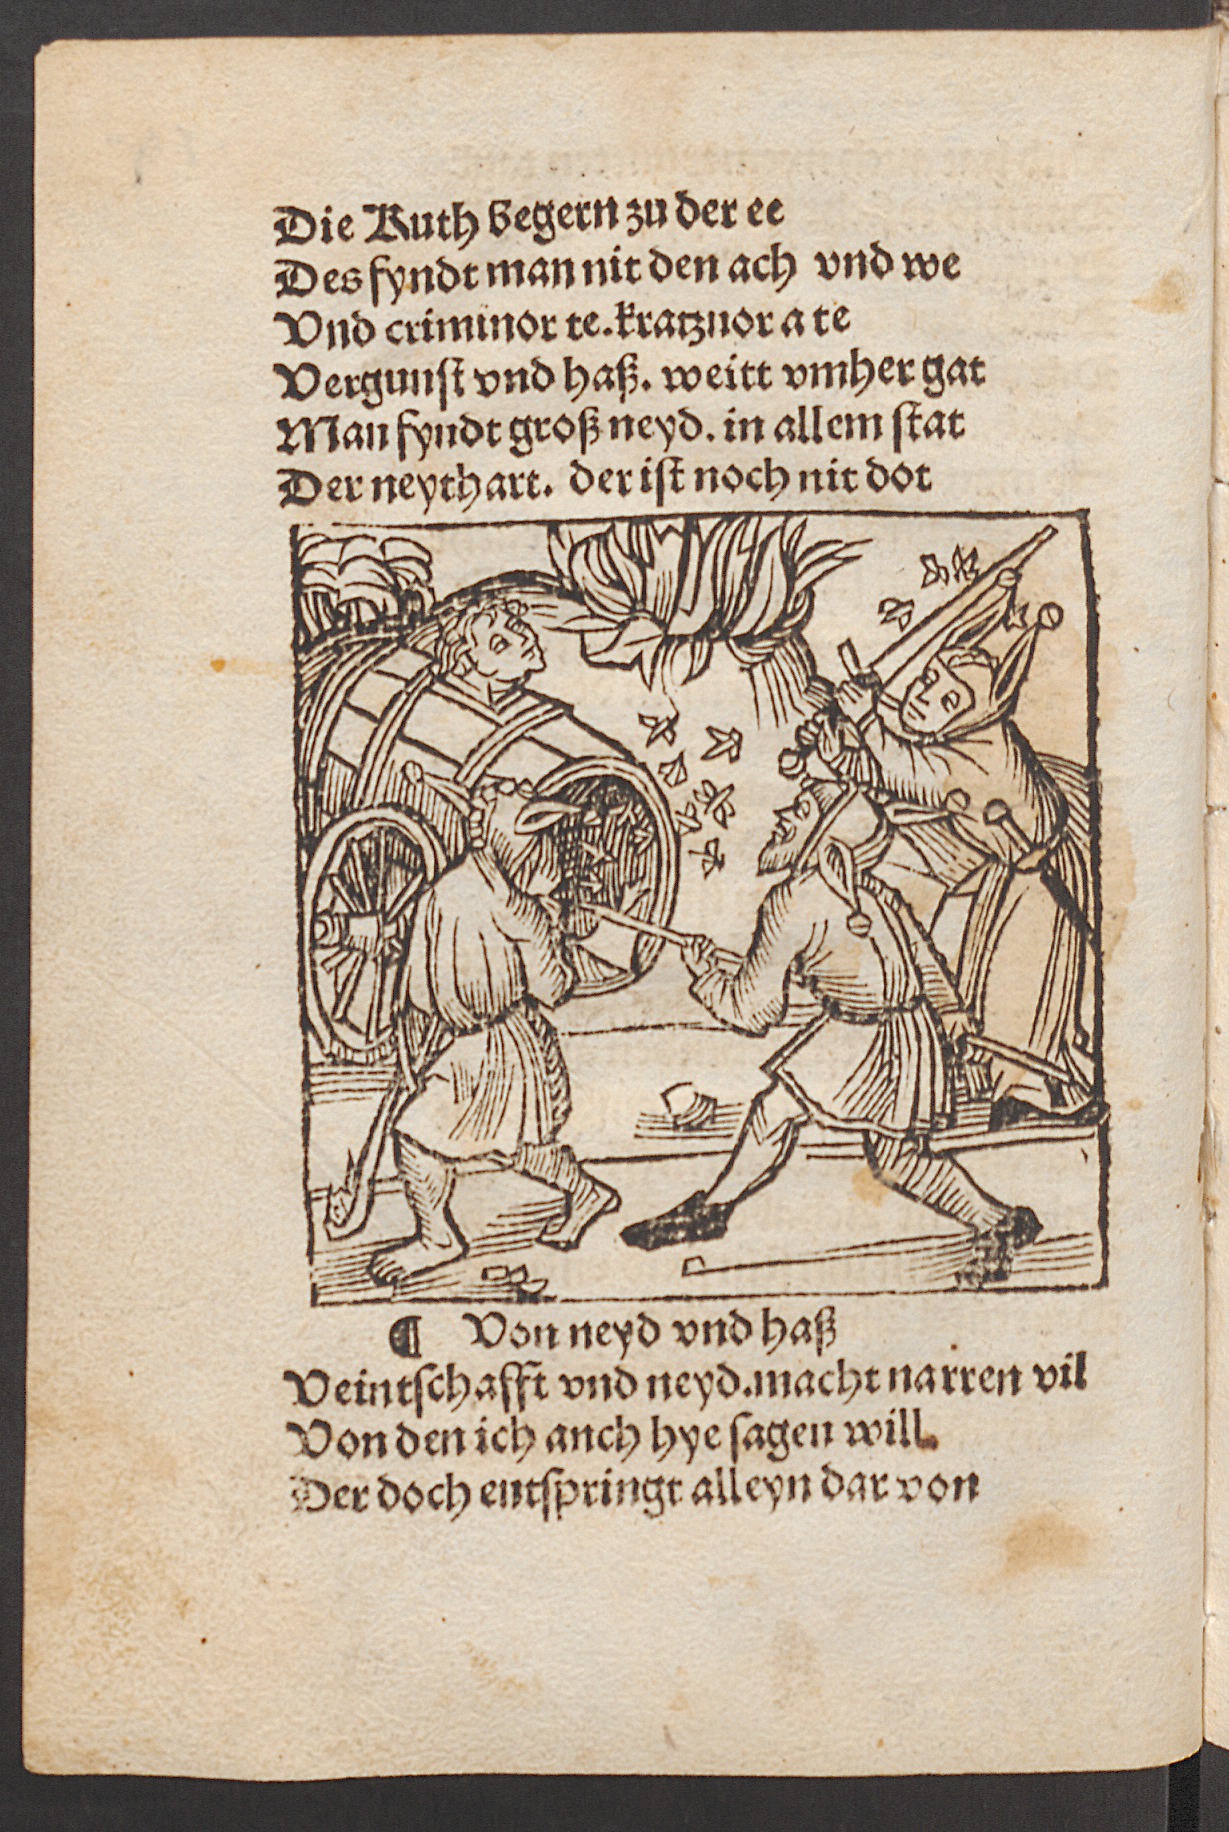 Die Ruth begern zu der ee
Des fyndt man nit den ach vnd we
Vnd criminor te. kratznor a te
Vergunſt vnd haß. weitt vmher gat
Man fyndt groß neyd. in allem ſtat
Der neythart. der iſt noch nit dot
¶ Von neyd vnd haß
Veintſchafft vnd neyd. macht narren vil
Von den ich anch hye ſagen will.
Der doch entſpringt alleyn dar von